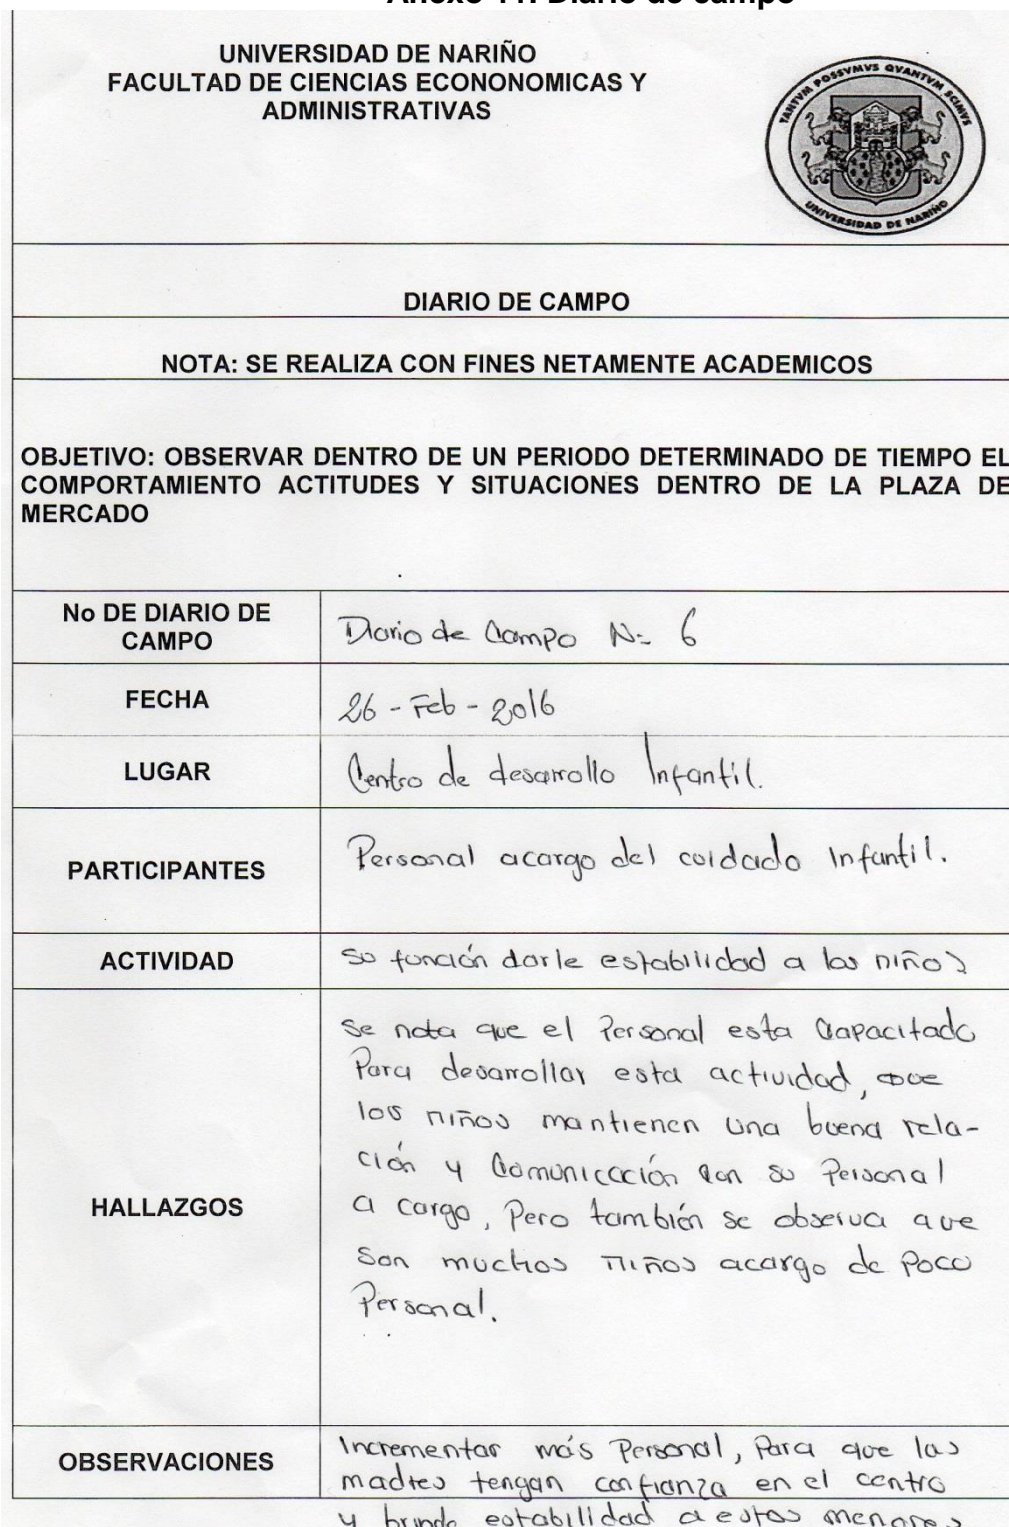 Anexo 11. Diario de campo
UNIVERSIDAD DE NARIÑO
FACULTAD DE CIENCIAS ECONONOMICAS Y
ADMINISTRATIVAS
TANTVM POSSVMVS QVANTVM SCIMVS
UNIVERSIDAD DE NARIÑO
DIARIO DE CAMPO
NOTA: SE REALIZA CON FINES NETAMENTE ACADEMICOS
OBJETIVO: OBSERVAR DENTRO DE UN PERIODO DETERMINADO DE TIEMPO EL
COMPORTAMIENTO ACTITUDES Y SITUACIONES DENTRO DE LA PLAZA DE
MERCADO
No DE DIARIO DE
CAMPO
Diario de Campo N= 6
FECHA
26 - Feb - 2016
LUGAR
Centro de desarrollo Infantil.
PARTICIPANTES
Personal acargo del cuidado Infantil.
ACTIVIDAD
su función darle estabilidad a los niños
HALLAZGOS
Se nota que el Personal esta Capacitado
Para desarrollar esta actividad, que
los niños mantienen una buena rela-
ción y Comunicación con su Personal
a cargo, Pero también se observa que
Son muchos niños acargo de Poco
Personal.
OBSERVACIONES
Incrementar más Personal, Para que las
madres tengan confianza en el centro
y brinde estabilidad a estos menores